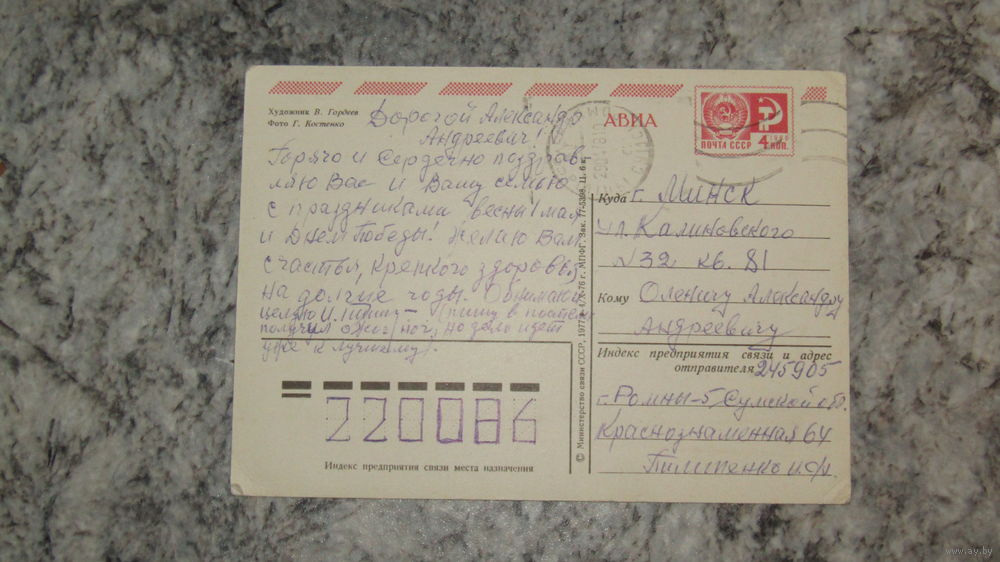 Художник В. Гордеев
Фото Г. Костенко
Дорогой Александр
Андреевич!
Горячо и сердечно поздрав
ляю Вас и Вашу семью
с праздниками весны 1 мая
и Днем Победы! Желаю Вам
счастья, крепкого здоровья,
на долгие годы. Обнимаю
целую И. Пилип – (пишу в постели
получил ожог ног, но дело идет
уже к лучшему).
220086
Индекс предприятия связи места назначения
© Министерство связи СССР, 1977. 4/X-76 г. МПФГ. Зак. 77-5398. Ц. 6 к.
АВИА
ПОЧТА СССР 4 КОП.
1966
Куда г. Минск
ул. Калиновского
N 32 кв. 81
Кому Оленичу Александру
Андреевичу
Индекс предприятия связи и адрес
отправителя 245905
г. Ромны-5, Сумской обл.
Краснознаменная 64
Пилипенко И. Ф.
www.ay.by